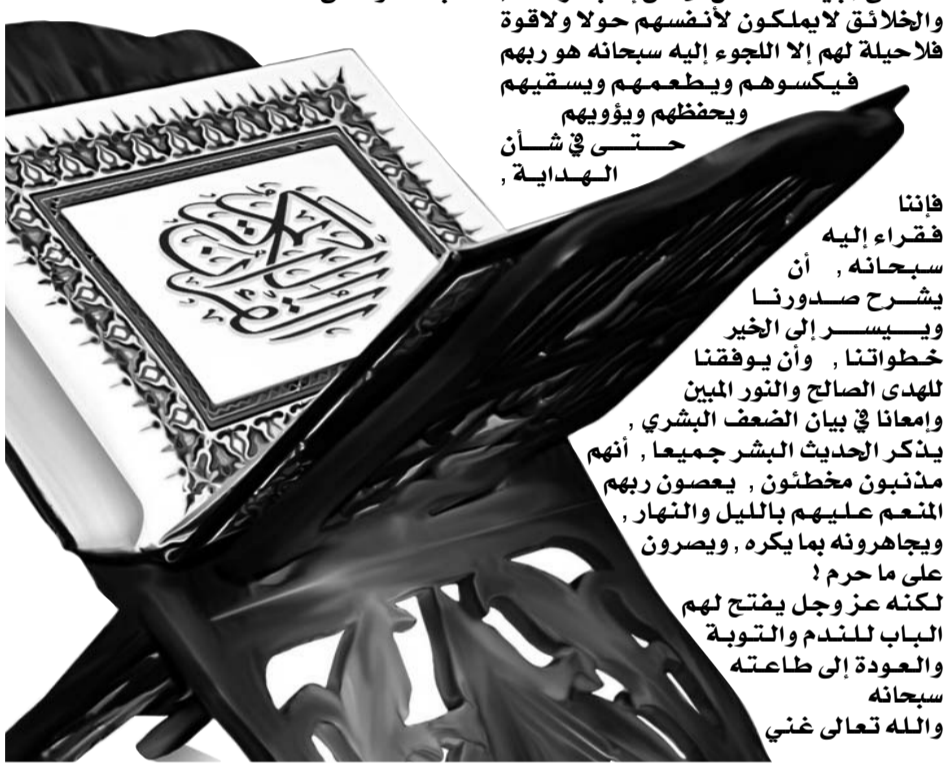 والخلائق لايملكون لأنفسهم حولا ولاقوة
فلاحيلة لهم إلا اللجوء إليه سبحانه هو ربهم
فيكسوهم ويطعمهم ويسقيهم
ويحفظهم ويؤويهم
حتى في شأن
الهداية ,
فإننا
فقراء إليه
سبحانه , أن
يشرح صدورنا
وييسر إلى الخير
خطواتنا , وأن يوفقنا
للهدى الصالح والنور المبين
وإمعانا في بيان الضعف البشري ,
يذكر الحديث البشر جميعا , أنهم
مذنبون مخطئون , يعصون ربهم
المنعم عليهم بالليل والنهار ,
ويجاهرونه بما يكره , ويصرون
على ما حرم !
لكنه عز وجل يفتح لهم
الباب للندم والتوبة
والعودة إلى طاعته
سبحانه
والله تعالى غني